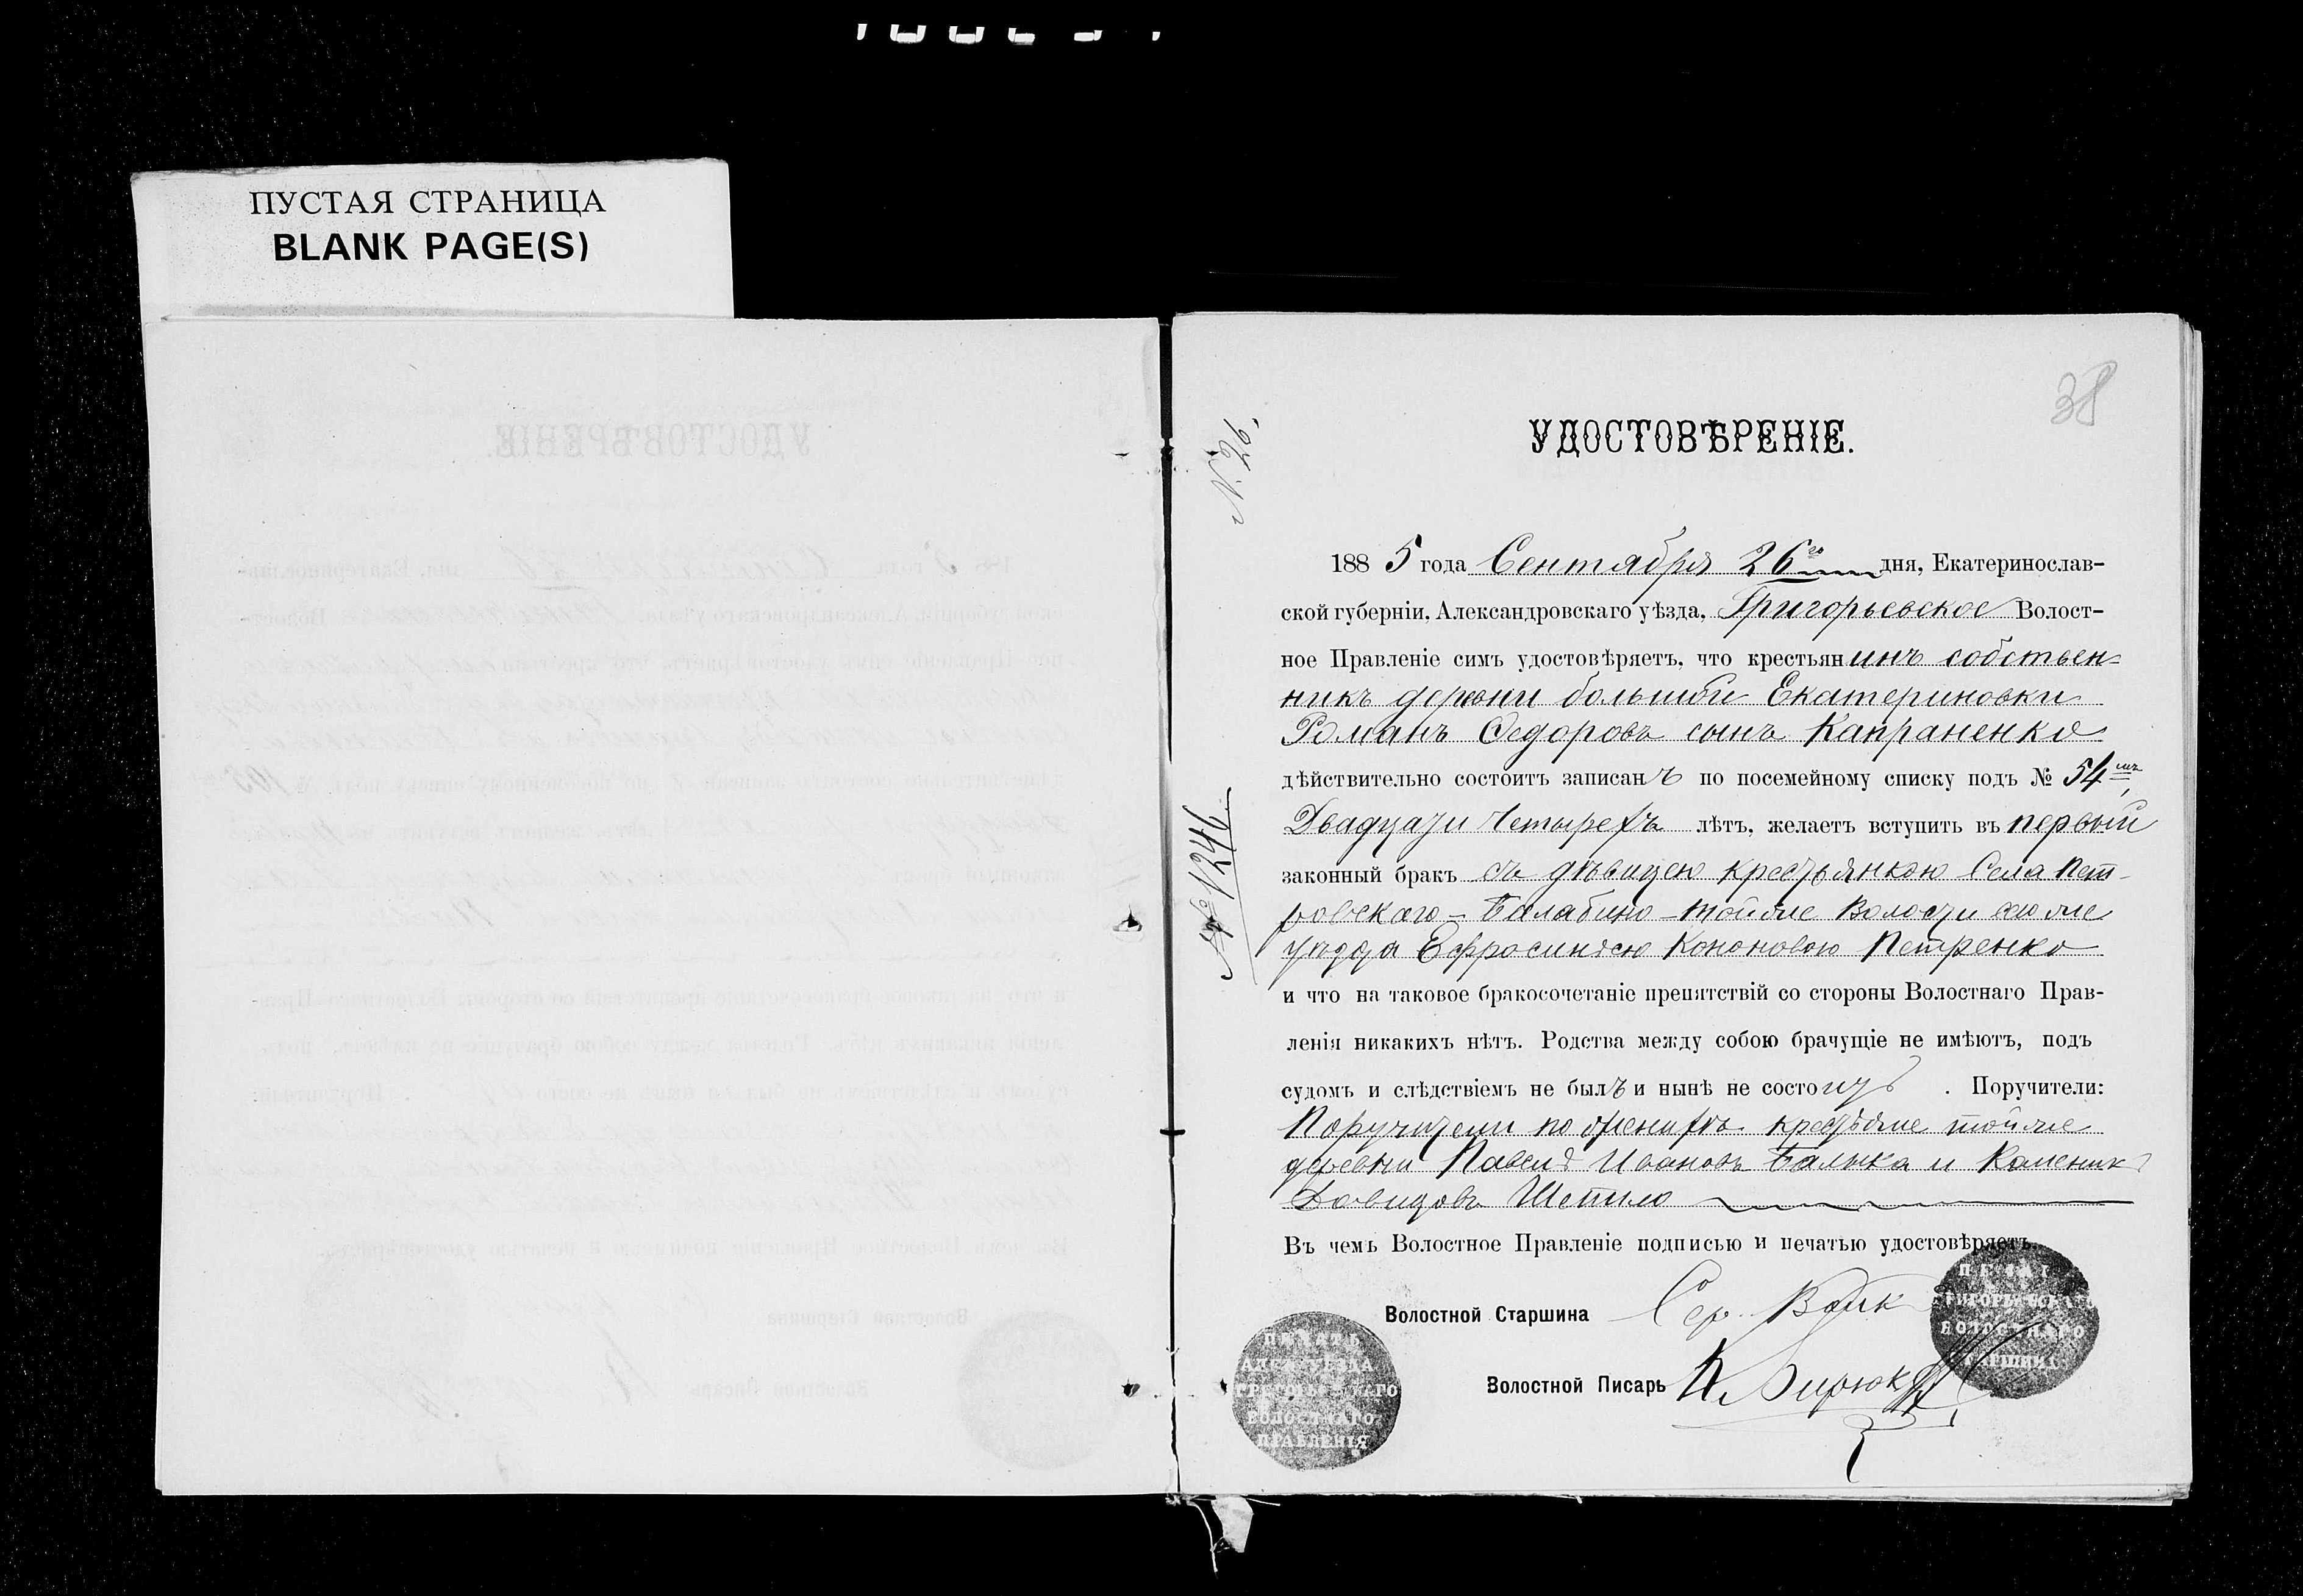 ПУСТАЯ СТРАНИЦА
BLANK PAGE(S)
38
N. 26.
№ 1246
УДОСТОВѢРЕНІЕ.
1885 года Сентября 26го дня, Екатеринослав-
ской губерніи, Александровскаго уѣзда, Григорьевское Волост-
ное Правленіе симъ удостовѣряетъ, что крестьянинъ собствен-
никъ деревни большой Екатериновки
Романъ Федоровъ сынъ Капраненко
дѣйствительно состоитъ записанъ по посемейному списку подъ № 54мъ,
Двадцати Четырехъ лѣтъ, желаетъ вступить въ первый
законный бракъ съ дѣвицею крестьянкою Села Пет-
ровскаго-Балабино-тойже Волости сегоже
уѣзда Ефросиніею Кононовою Петренко
и что на таковое бракосочетаніе препятствій со стороны Волостнаго Прав-
ленія никакихъ нѣтъ. Родства между собою брачущіе не имѣютъ, подъ
судомъ и слѣдствіемъ не былъ и нынѣ не состоитъ. Поручители:
Поручители по женихѣ крестьяне тойже
деревни Павелъ Ивановъ Балыка и
Давидовъ Шепило
Въ чемъ Волостное Правленіе подписью и печатью удостовѣряетъ.
Волостной Старшина Сер. Волк
Волостной Писарь Бирюк
ПЕЧАТЬ
АЛЕК. УѢЗДА
ГРИГОРЬЕВСКАГО
ВОЛОСТНАГО
ПРАВЛЕНІЯ
ПЕЧАТ
ГРИГОРЬЕВСКАГО
ВОЛОСТНАГО
СТАРШИНЫ